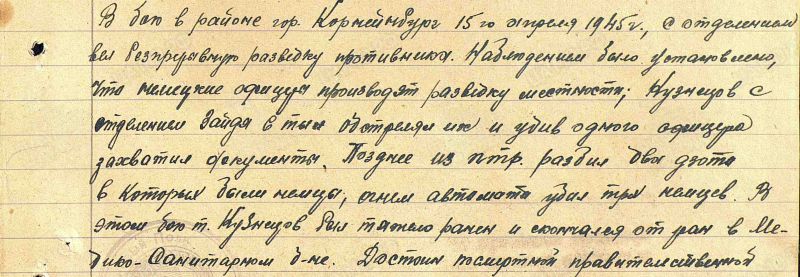 В бою в районе гор. Корнейнбург 15го апреля 1945г., с отделением
вел безпрерывную развѣдку противника. Наблюдением было установлено,
что немецкие офицеры производят развѣдку местности; Кузнецов с
отделением зайдя в тыл обстрелял их и убив одного офицера
захватил документы. Позднее из птр. разбил два дзота
в которых были немцы, огнем автомата убил трех немцев. В
этом бою т. Кузнецов был тяжело ранен и скончался от ран в Ме-
дико-Санитарном б-не. Достоин посмертной правительственной